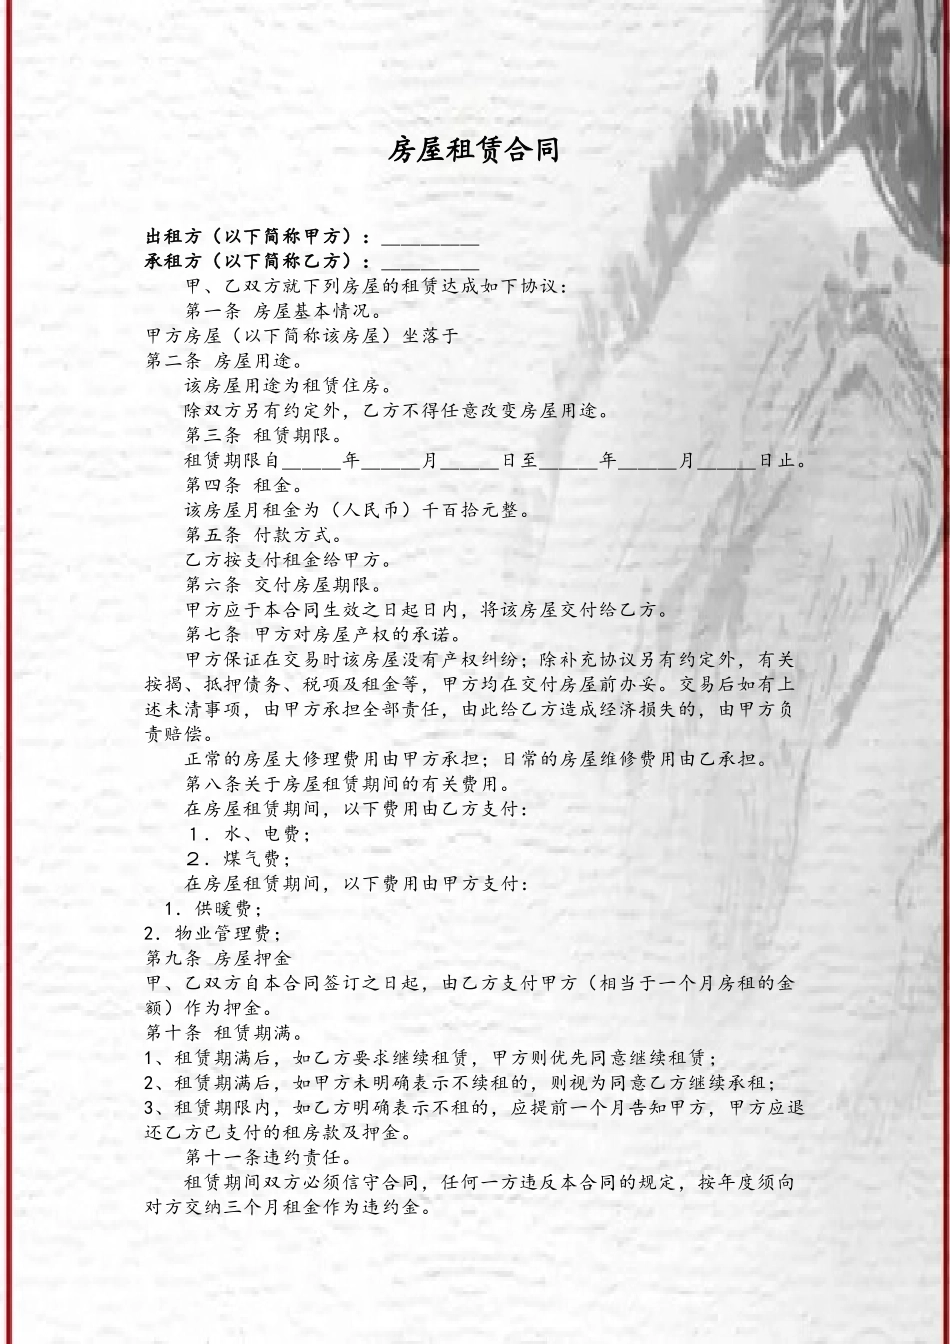 房屋租赁合同
出租方（以下简称甲方）：＿＿＿＿＿
承租方（以下简称乙方）：＿＿＿＿＿
甲、乙双方就下列房屋的租赁达成如下协议：
第一条 房屋基本情况。
甲方房屋（以下简称该房屋）坐落于
第二条 房屋用途。
该房屋用途为租赁住房。
除双方另有约定外，乙方不得任意改变房屋用途。
第三条 租赁期限。
租赁期限自＿＿＿年＿＿＿月＿＿＿日至＿＿＿年＿＿＿月＿＿＿日止。
第四条 租金。
该房屋月租金为（人民币）千百拾元整。
第五条 付款方式。
乙方按支付租金给甲方。
第六条 交付房屋期限。
甲方应于本合同生效之日起日内，将该房屋交付给乙方。
第七条 甲方对房屋产权的承诺。
甲方保证在交易时该房屋没有产权纠纷；除补充协议另有约定外，有关
按揭、抵押债务、税项及租金等，甲方均在交付房屋前办妥。交易后如有上
述未清事项，由甲方承担全部责任，由此给乙方造成经济损失的，由甲方负
责赔偿。
正常的房屋大修理费用由甲方承担；日常的房屋维修费用由乙承担。
第八条关于房屋租赁期间的有关费用。
在房屋租赁期间，以下费用由乙方支付：
１．水、电费；
２．煤气费；
在房屋租赁期间，以下费用由甲方支付：
1．供暖费；
2．物业管理费；
第九条 房屋押金
甲、乙双方自本合同签订之日起，由乙方支付甲方（相当于一个月房租的金
额）作为押金。
第十条 租赁期满。
1、租赁期满后，如乙方要求继续租赁，甲方则优先同意继续租赁；
2、租赁期满后，如甲方未明确表示不续租的，则视为同意乙方继续承租；
3、租赁期限内，如乙方明确表示不租的，应提前一个月告知甲方，甲方应退
还乙方已支付的租房款及押金。
第十一条违约责任。
租赁期间双方必须信守合同，任何一方违反本合同的规定，按年度须向
对方交纳三个月租金作为违约金。